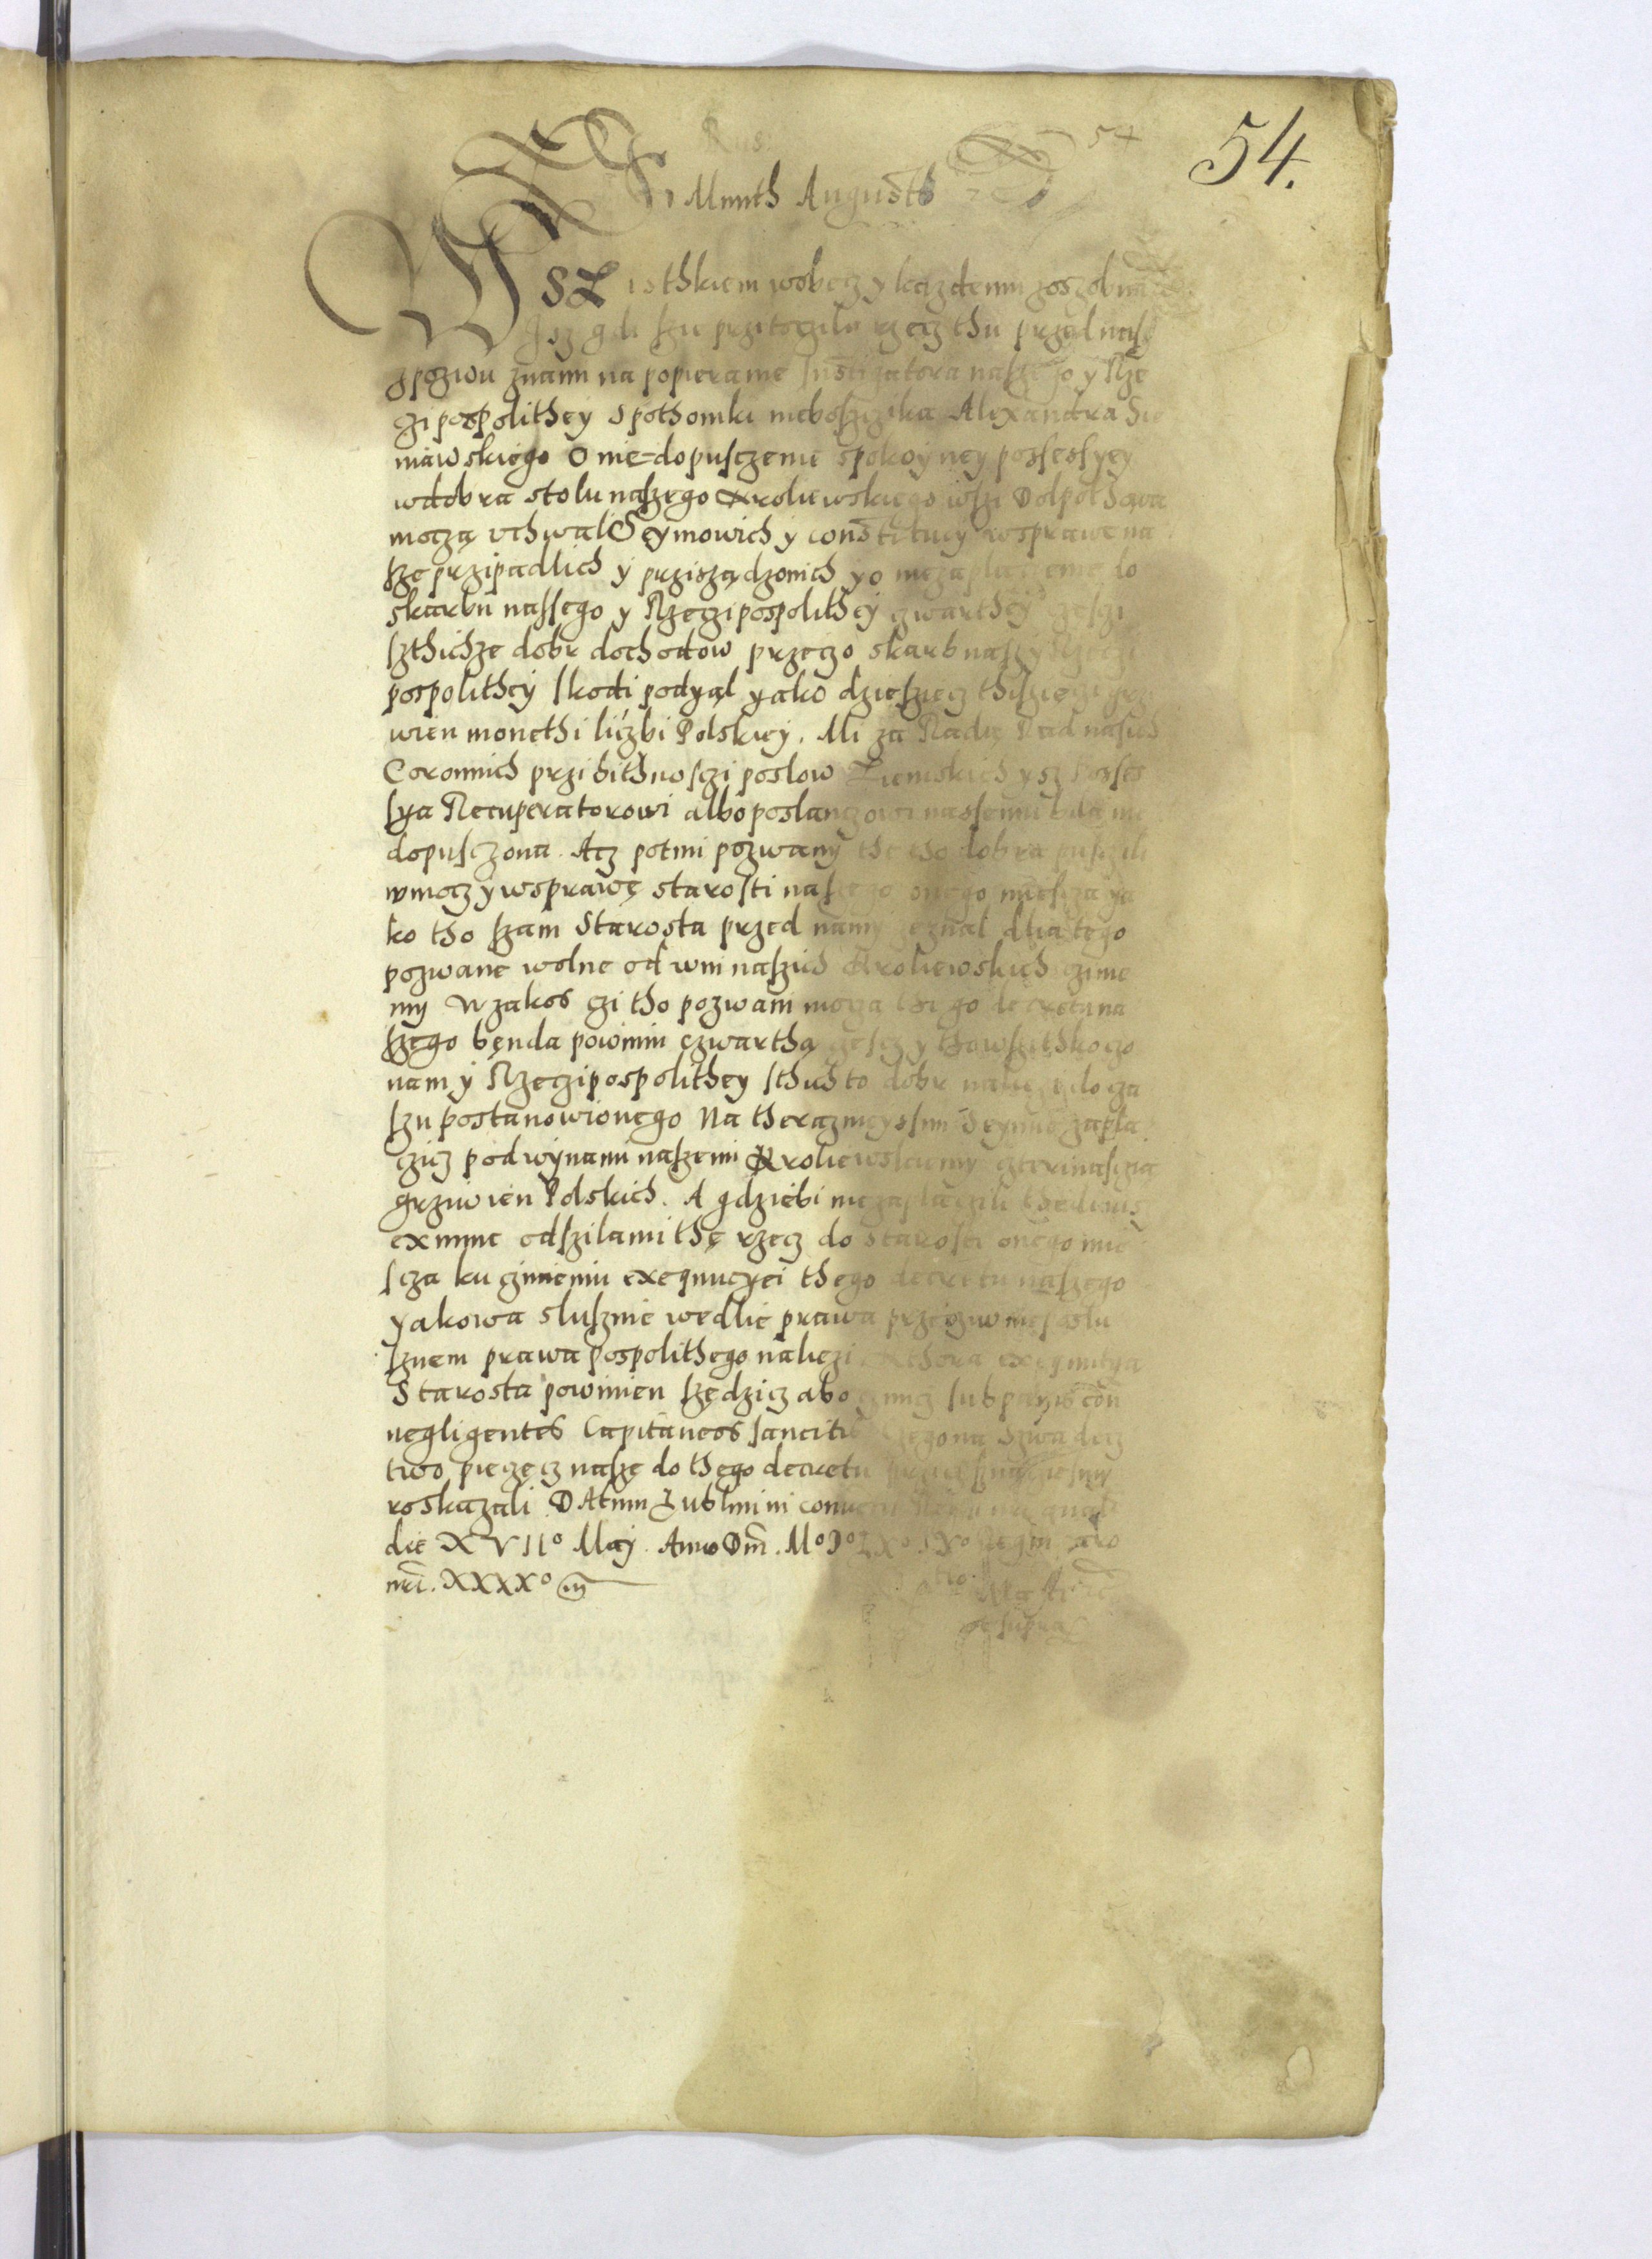 Rus. 54
54.
Simunth Augusth
Wszisthkiem wobecz y kazdemu zoszobna
Jsz gdi szu przitoczila rzecz thu przed nasz
z pozwu znami na popieranie Instigatora naszego y Rze
czipospolithey spothomki nieboszczika Alexandra Sie
niawskiego O nie=dopuszczenie spokoyney possessyey
w dobra stolu naszego Kroliewskiego wszi Dolpothowa
moczą vchwal Seymowich y constitucy w sprawe na
sze przipadlich y przisządzonich y o niezaplaczenie do
skarbu nassego y Rzeczipospolithey czwarthey czesczi
szthichze dobr dochodow przeczo skarb nasz y Rzeczi
pospolithey skodi podyąl yako dzieszięcz thisziączi grzi
wien monethi liczbi Polskiey. Mi za Radą Rad naszich
Coronnich przi bithnosczi poslow Ziemskich ysz Posses
sya Recuperatorowi albo poslanczowi nassemu bila nie
dopusczona. Acz potmi pozwany the tho dobra pusczili
w mocz y w sprawę starosti naszego onego miescza ya
ko tho szam Starosta przed nami zeznal dlia tego
pozwane wolne od win naszich Kroliewskich czinie
my Wzakos czi tho pozwani moczą thego decretu na
szego bęnda powinni czwarthą czescz y thowszithko czo
nam y Rzeczipospolithey sthich to dobr naliezzilo cza
szu postanowionego Na therazmeyssim Seymie zapla
czicz pod winami naszemi Kroliewskiemy czterinascza
grziwien Polskich. A gdziebi niezaplaczili thedi wisz
ex nunc odszilami thę rzecz do starosti onego mie
scza ku czinieniu exequucyei thego decretu naszego
yakowa slusznie wedlie prawa przecziw nieposlu
sznem prawa pospolithego naliezi Kthora exequutya
Starosta powinien szędzicz abo czinicz sub penis con
negligentes Capitaneos sancitis Czego na szwadecz
two pieczęcz nasze do thego decretu przicisznąc iesmy
roskazali. DAtum Lublini in conventu Regni nri gnali
die XVIIº Maij. Anno Dm̄. MºDºLXºIXº Regni vero
nr̄i. XXXXº
ut supra